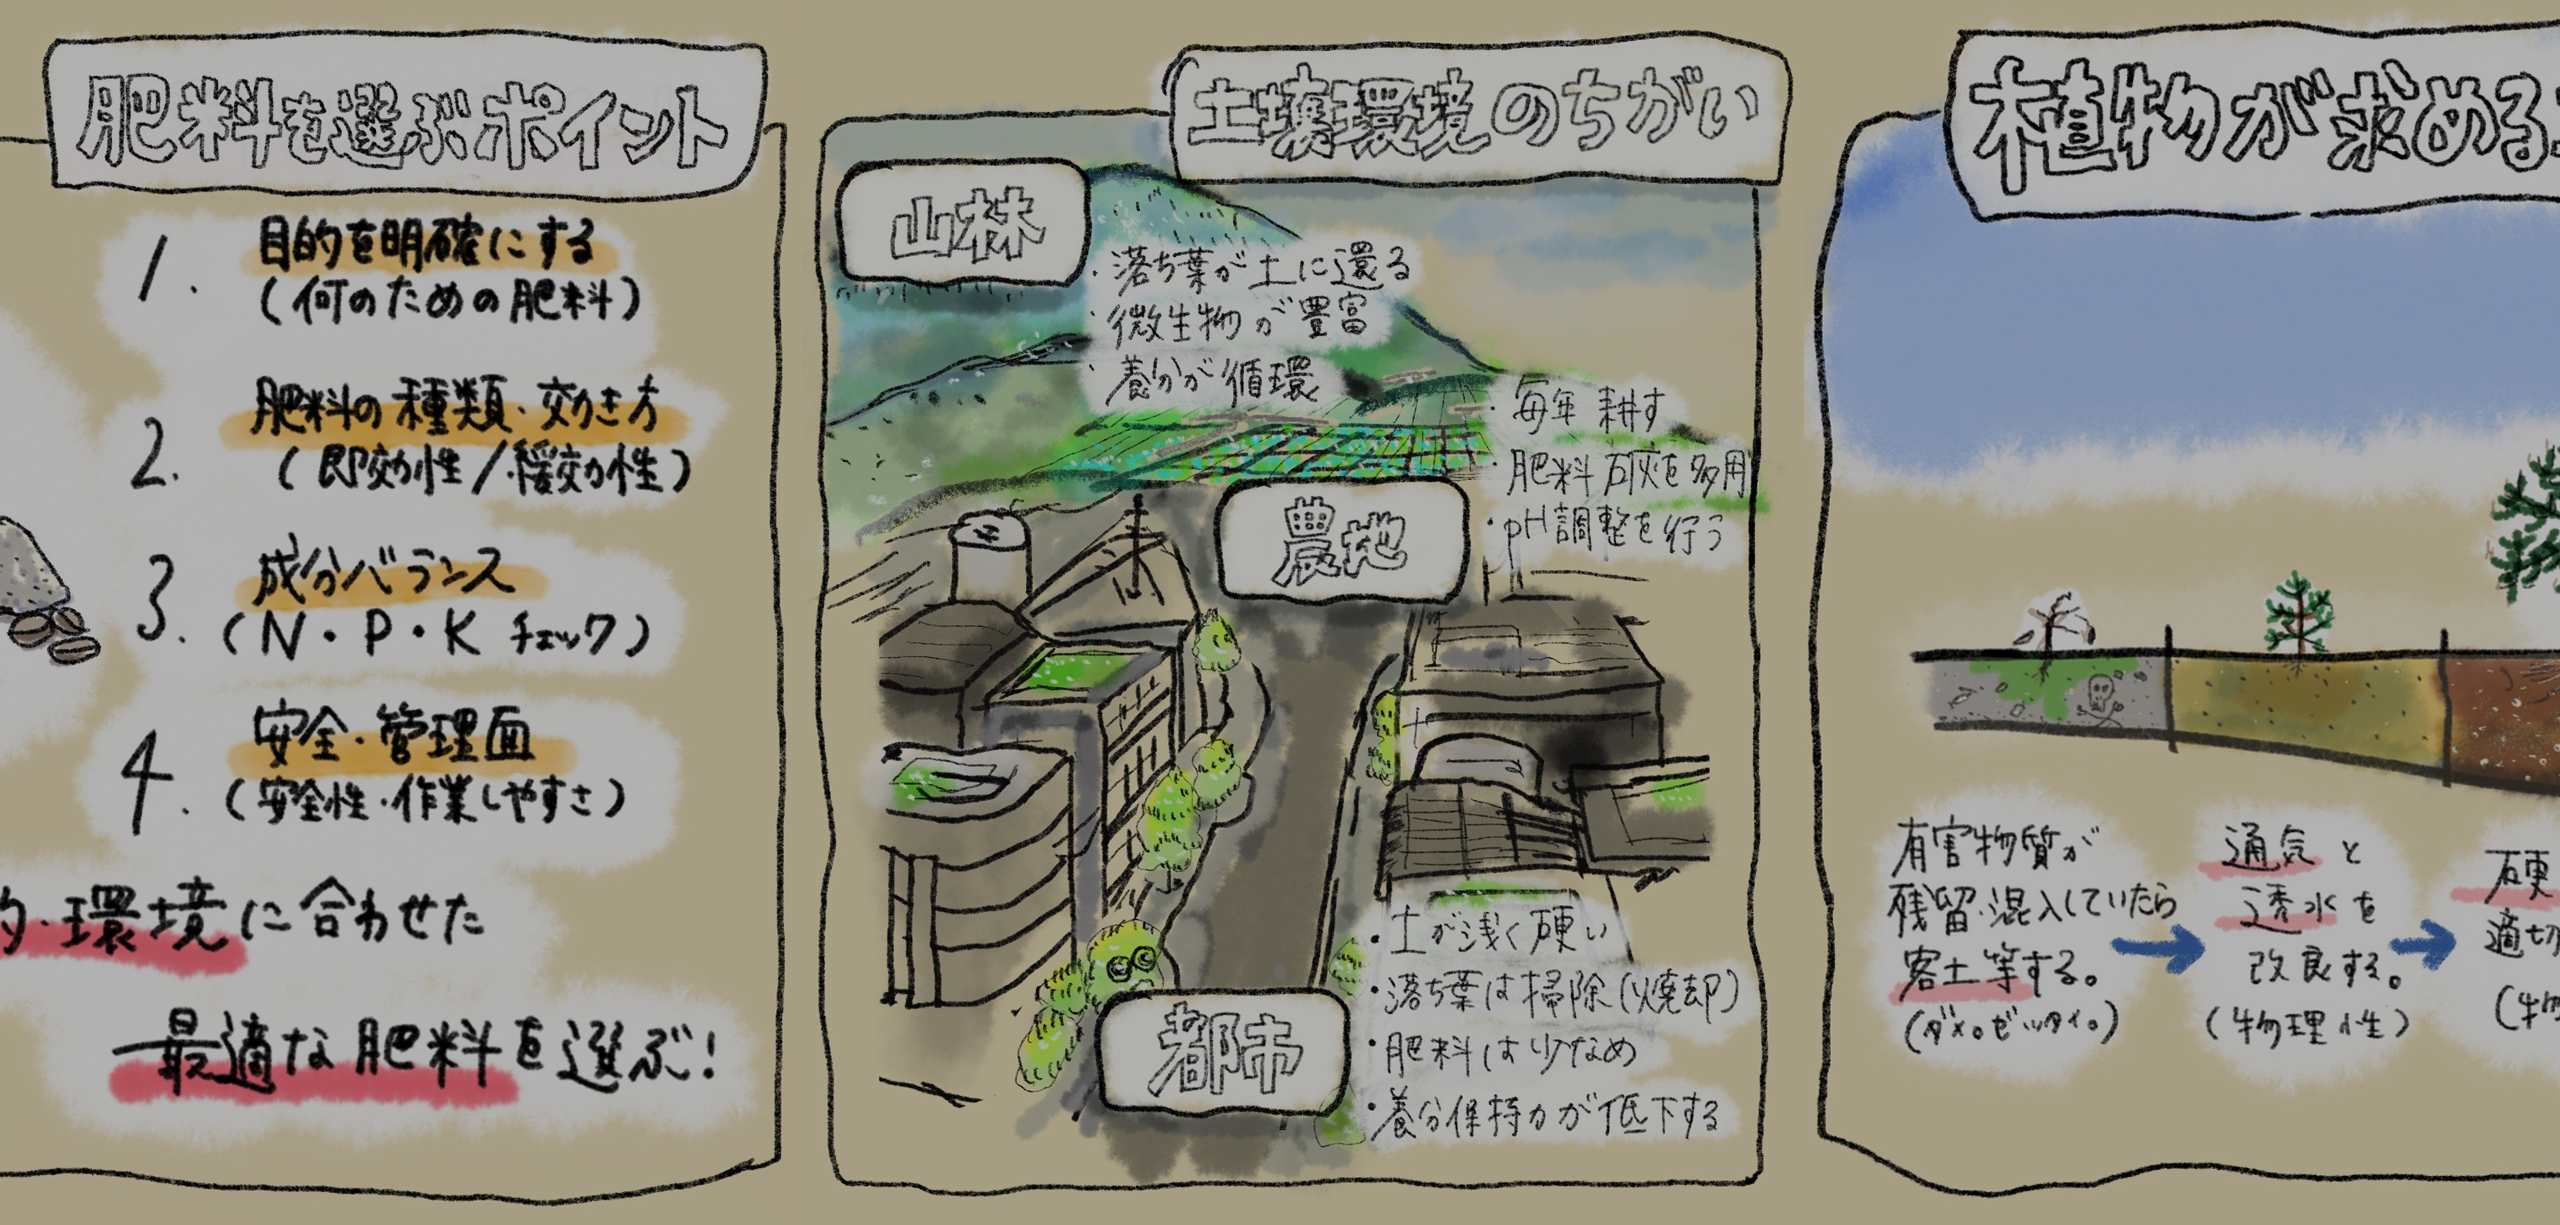 肥料を選ぶポイント
1. 目的を明確にする
(何のための肥料)
2. 肥料の種類・効き方
(即効性/緩効性)
3. 成分バランス
(N・P・Kチェック)
4. 安全・管理面
(安全性・作業しやすさ)
的・環境に合わせた
最適な肥料を選ぶ!
土壌環境のちがい
山林
・落ち葉が土に還る
・微生物が豊富
・養分が循環
・毎年耕す
・肥料石灰を多用
・pH調整を行う
農地
・土が浅く硬い
・落ち葉は掃除(焼却)
・肥料は少なめ
・養分保持力が低下する
都市
植物が求める
有害物質が
残留・混入していたら
客土等する。
(ダメ。ゼッタイ。)
通気と
透水を
改良する。
(物理性)
硬
適切
(物